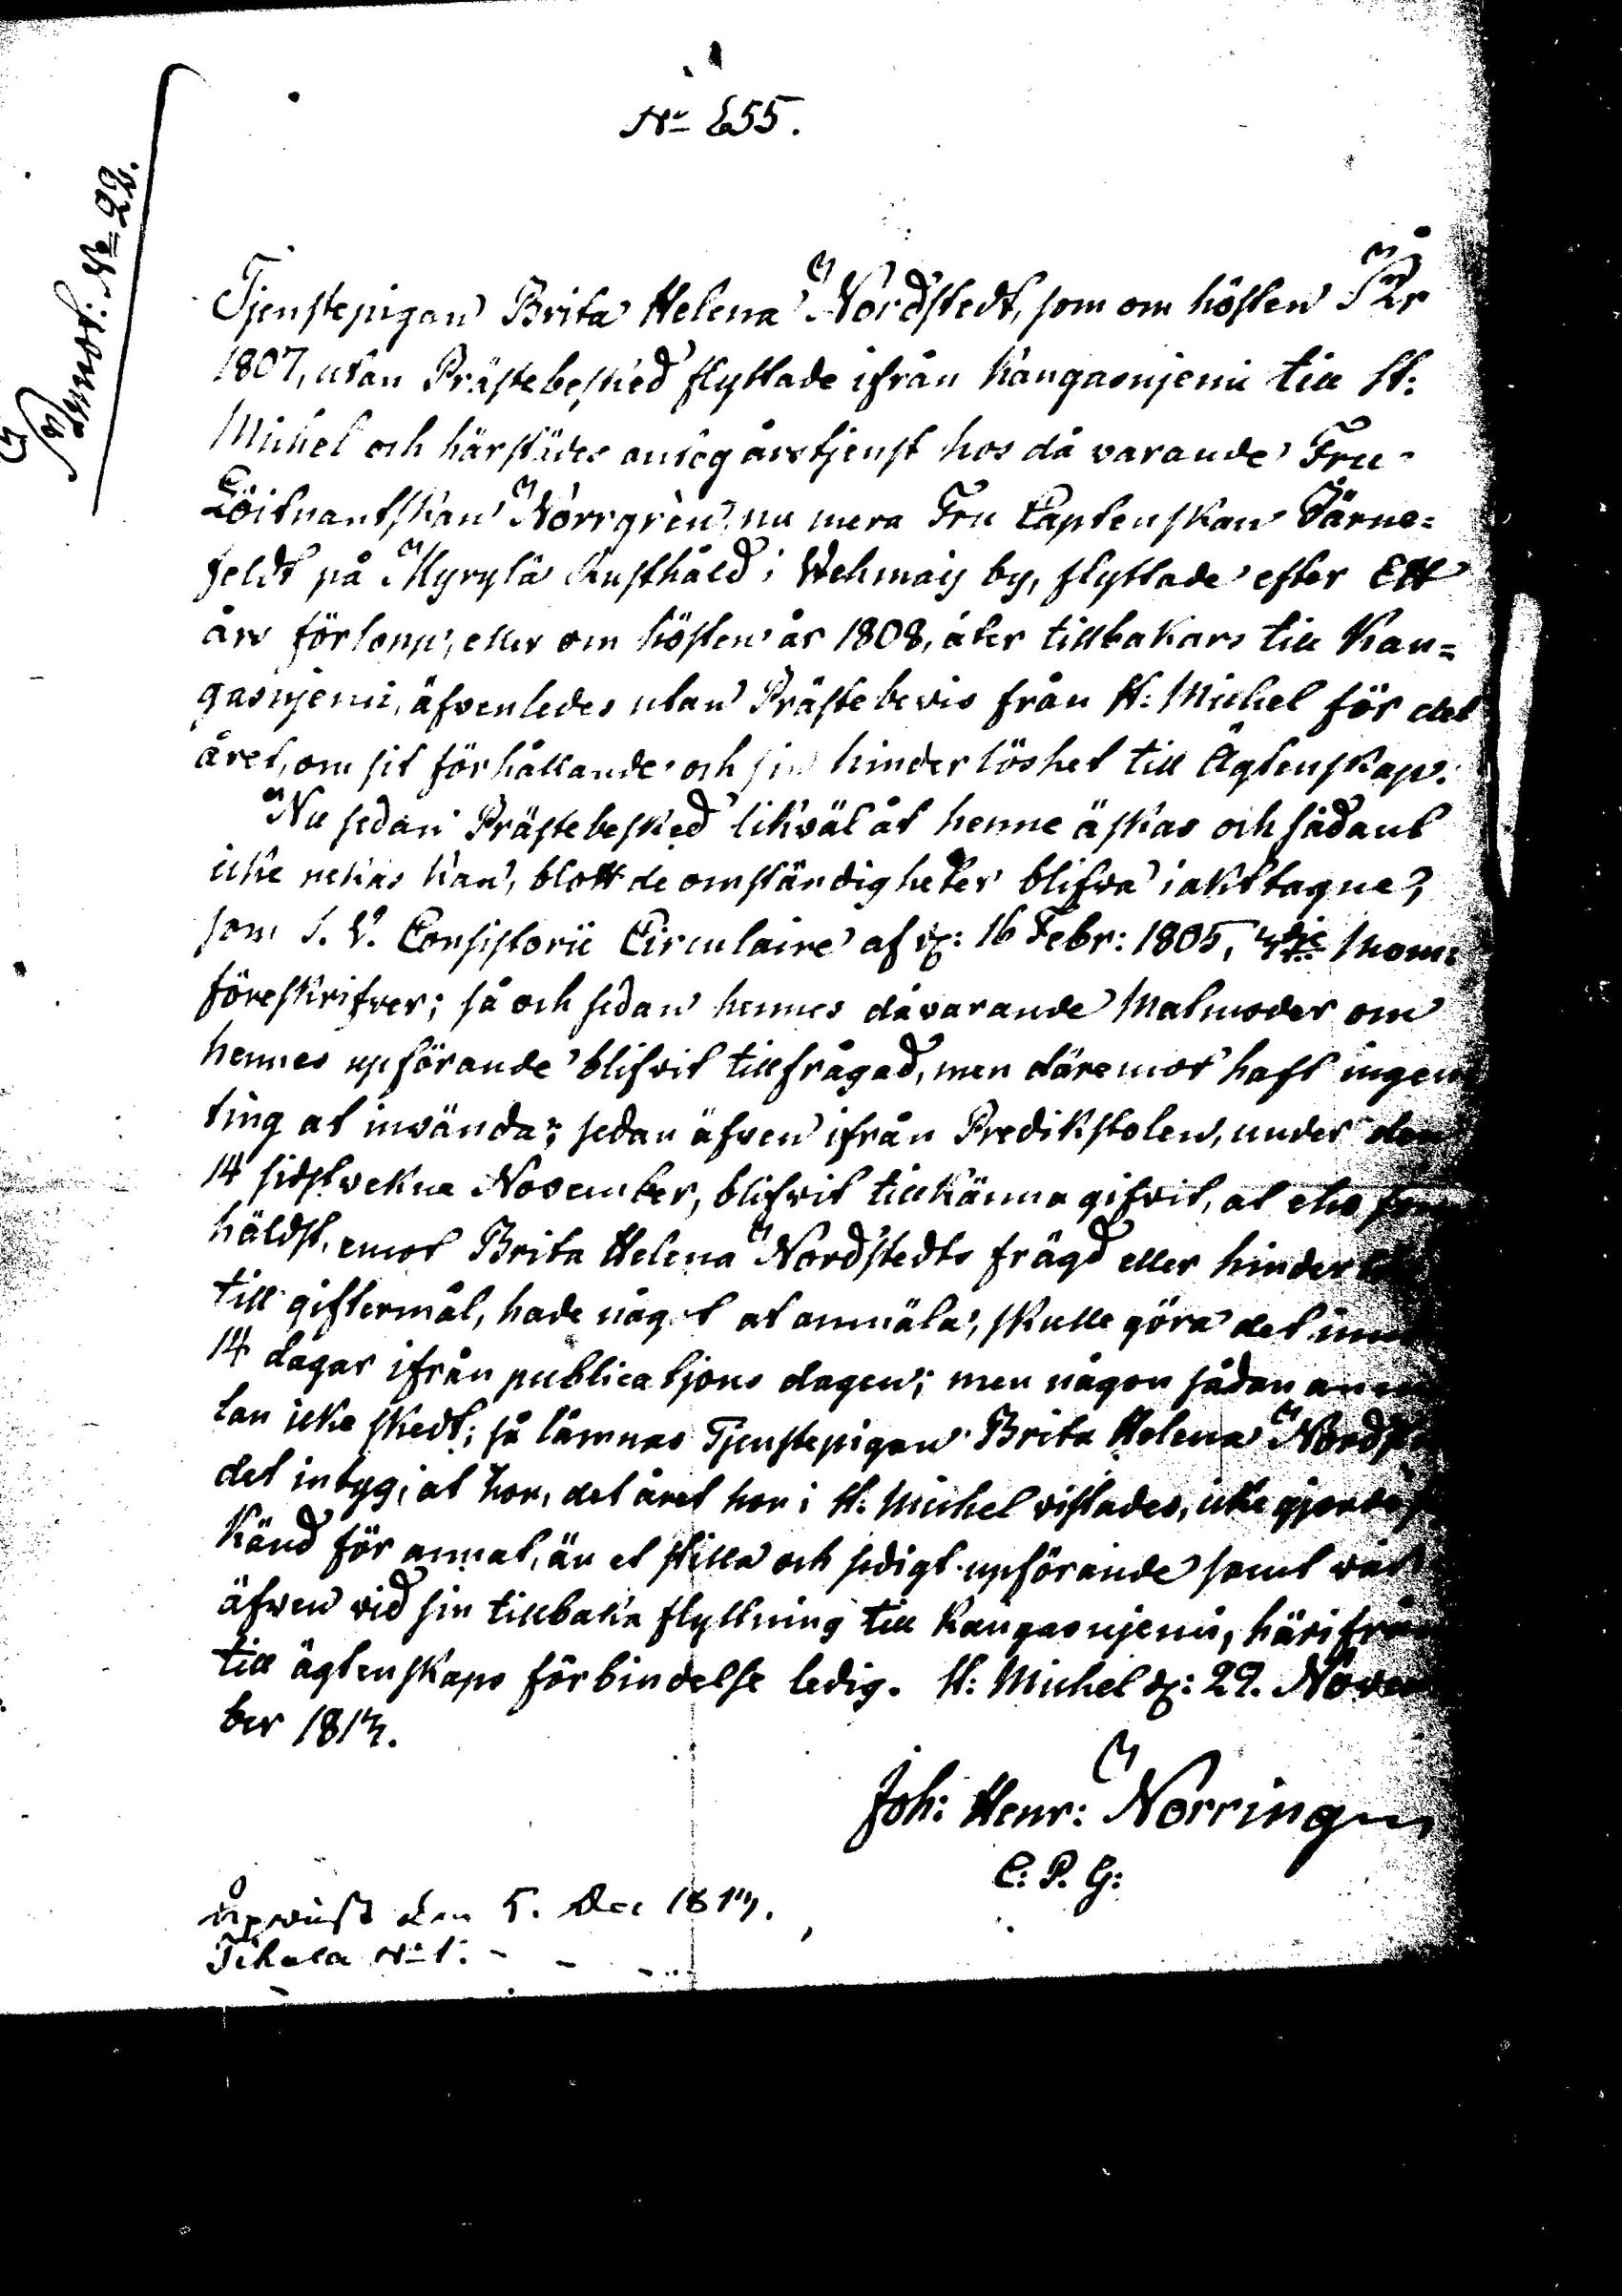 No 255.
No 22.
Tjenstepigan Brita Helena Nordstedt, som om hösten År
1807, utan Prästebesked flyttade ifrån Kangasnjemi till St:
Michel och härstädes antog årstjenst hos då varande Fru
Löitnantskan Norrgrèn, nu mera Fru Captenskan Järne=
feldt på Myrylä Rusthåld i Wehmais by, flyttade efter Ett
års förlopp, eller om hösten år 1808, åter tillbakars till Kan=
gasnjemi, äfvenledes utan Prästebevis från St: Michel för det
året, om sit förhållande och sin hinderlöshet till Ägtenskap.
Nu sedan Prästebesked likväl åt henne äskas och sådant
icke nekas kan, blott de omständigheter blifva iakttagne,
som S. V. Consistorii Circulaire af d: 16 Febr: 1805, mom:
föreskrifver; så och sedan hennes dåvarande Matmoder om
hennes upförande blifvit tillfrågad, men däremot haft ingen
ting at invända; sedan äfven ifrån Predikstolen, under den
14 sidstvekne November, blifvit tillkänna gifvit, at eho som
häldst, emot Brita Helena Nordstedts frägd eller hinder
till giftermål, hade något at anmäla, skulle göra det inn
14 dagar ifrån publicatjons dagen; men någon sådan anm
lan icke skedt; så lämnas Tjenstepigan Brita Helena Nordst
det intyg, at hon, det året hon i St: Michel vistades, icke gjorde s
känd för annat, än et stilla och sedigt upförande samt var
äfven vid sin tillbaka flyttning till Kangasnjemi, härifrån
till ägtenskaps förbindelse ledig. St: Michel d: 29. Novem
ber 1813.
Joh: Henr: Norring
C. P. G:
Upvist den 5. Dec 1813.
Tikala No 1.